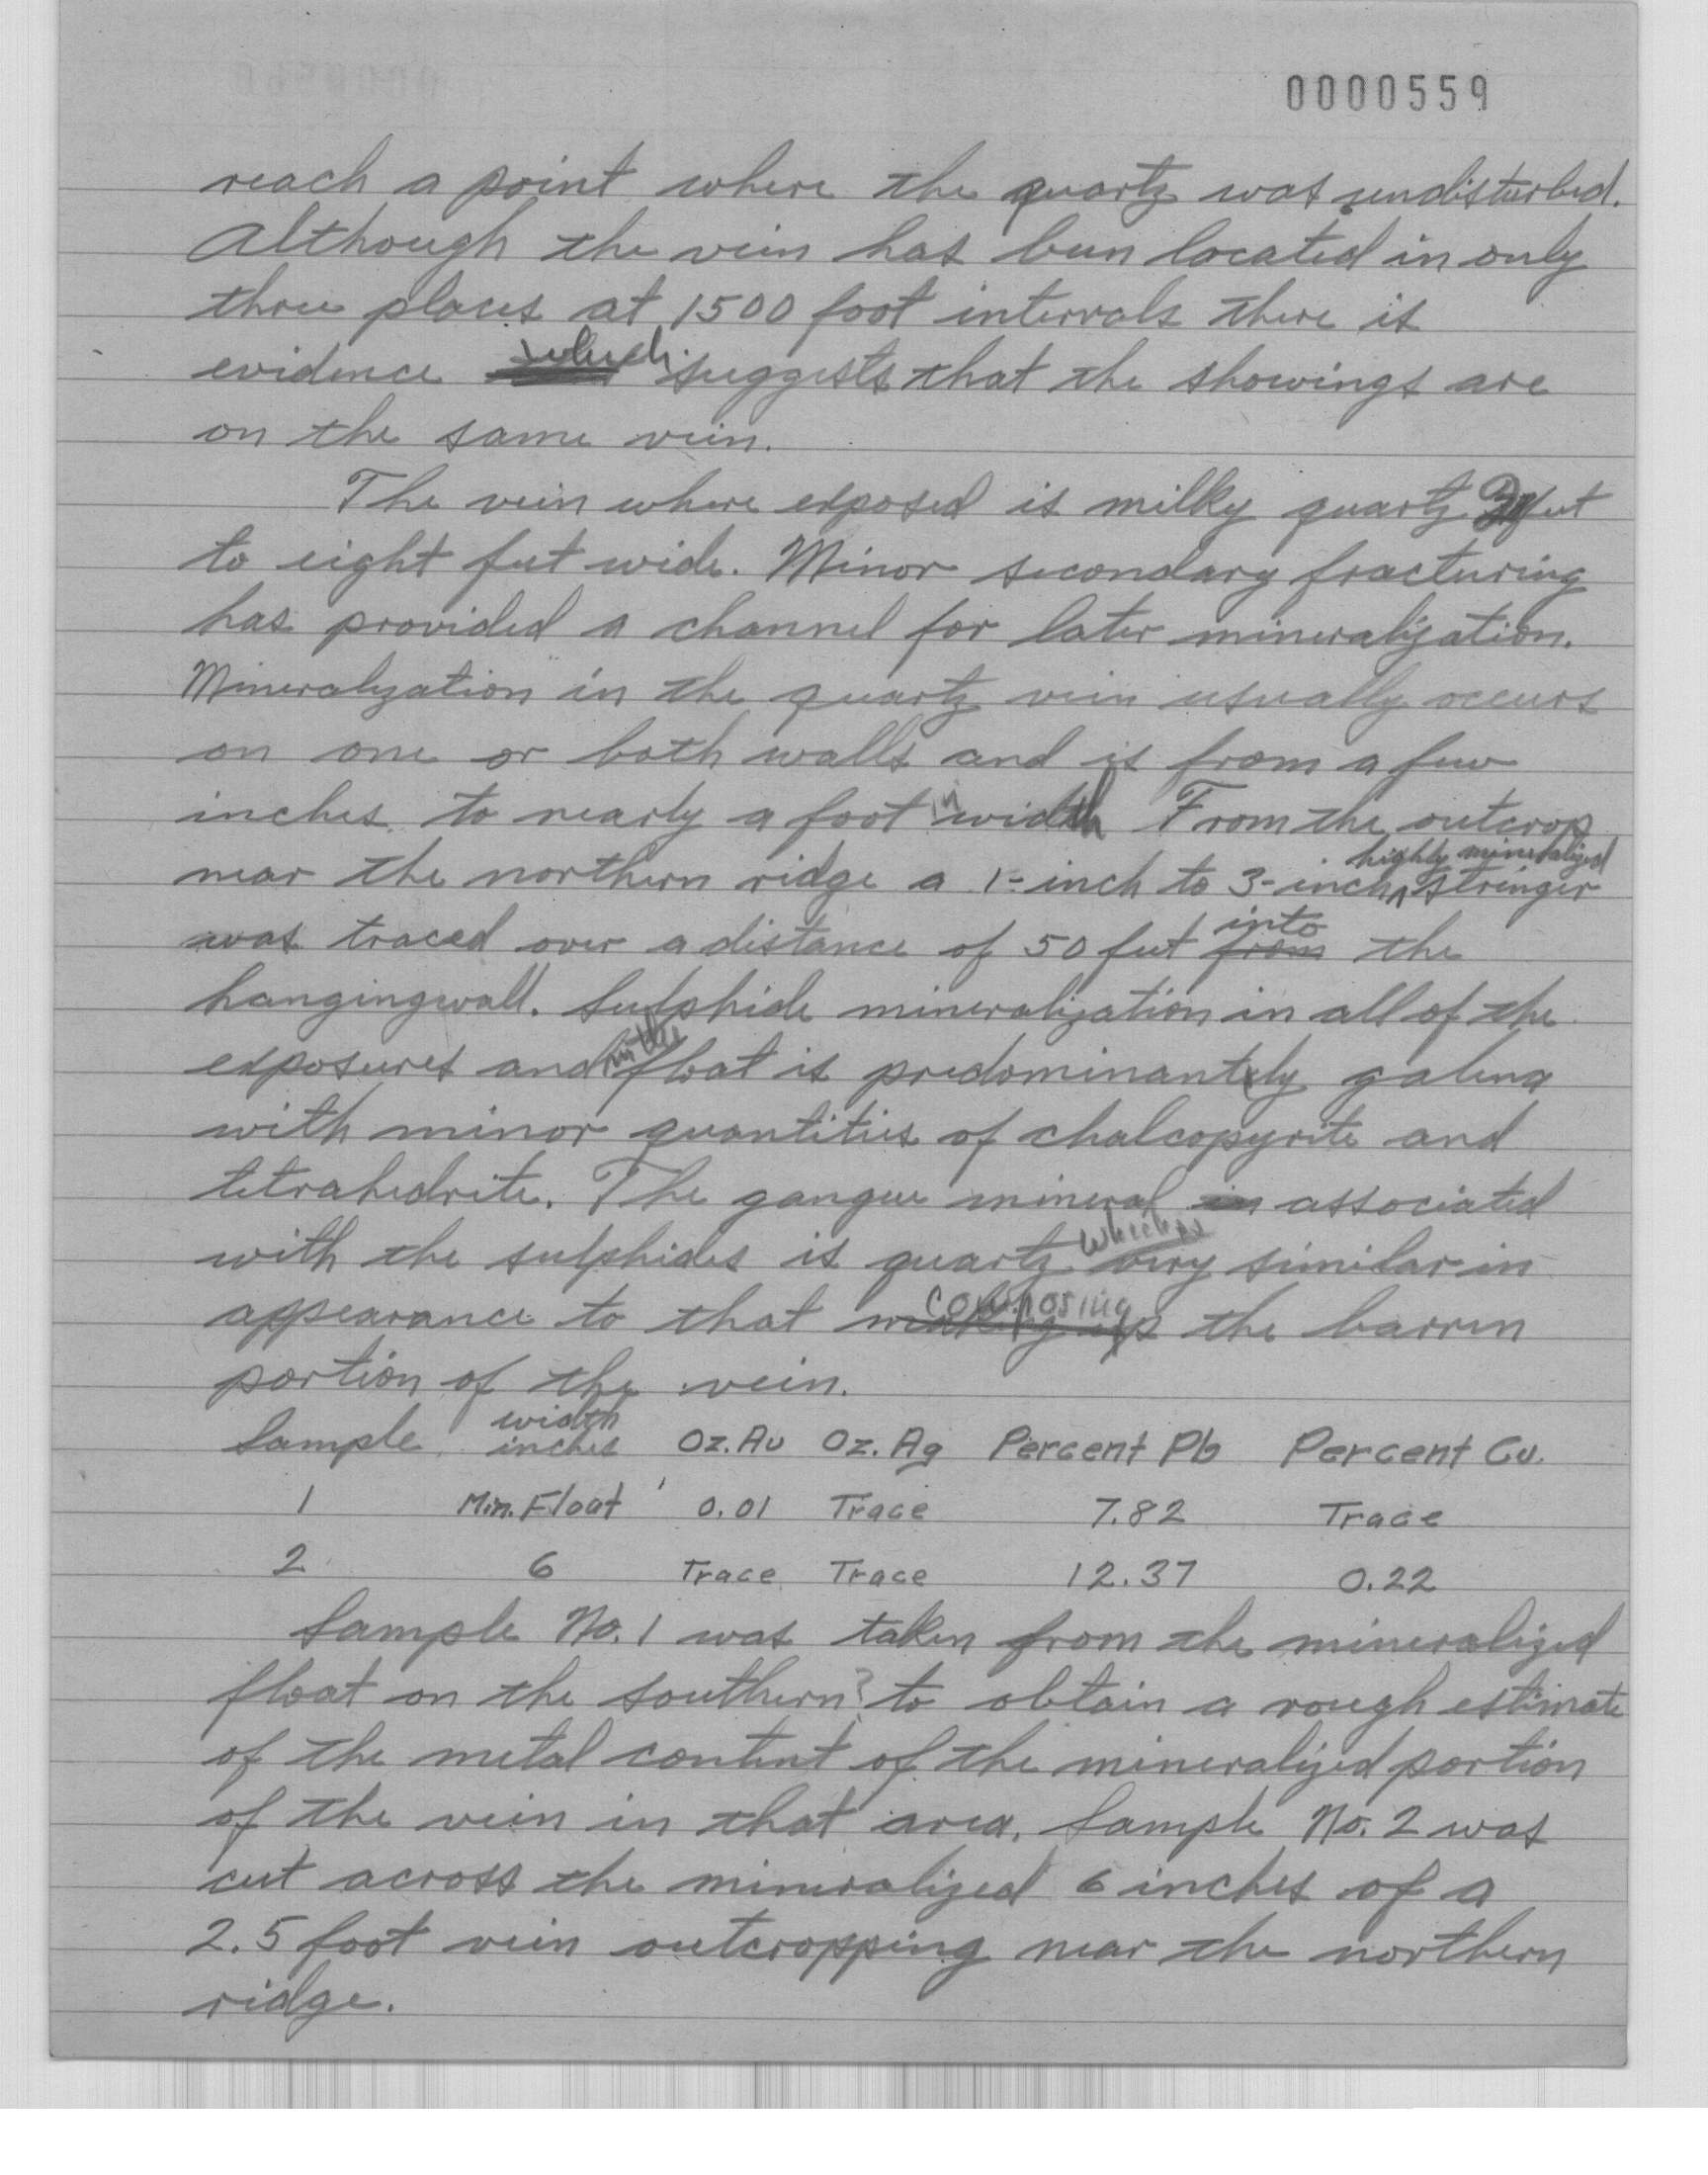 0000559
reach a point where the quartz was undisturbed.
Although the vein has been located in only
three places at 1500 foot intervals there is
evidence which suggests that the showings are
on the same vein.
The vein where exposed is milky quartz feet
to eight feet wide. Minor secondary fracturing
has provided a channel for later mineralization.
Mineralization in the quartz vein usually occurs
on one or both walls and is from a few
inches to nearly a foot in width From the outcrop
near the northern ridge a 1-inch to 3-inch highly mineralized stringer
was traced over a distance of 50 feet into from the
hangingwall. Sulphide mineralization in all of the
exposures and in the float is predominantly galena
with minor quantities of chalcopyrite and
tetrahedrite. The gangue mineral in associated
with the sulphides is quartz which is very similar in
appearance to that composing making up the barren
portion of the vein.
Sample width inches Oz. Au Oz. Ag Percent Pb Percent Cu.
1 Min. Float 0.01 Trace 7.82 Trace
2 6 Trace Trace 12.37 0.22
Sample No. 1 was taken from the mineralized
float on the southern? to obtain a rough estimate
of the metal content of the mineralized portion
of the vein in that area. Sample No. 2 was
cut across the mineralized 6 inches of a
2.5 foot vein outcropping near the northern
ridge.